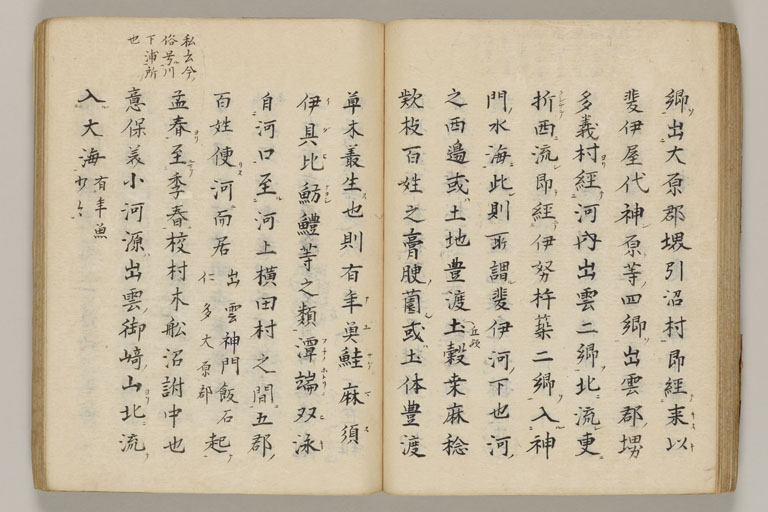 郷出大原郡堺引沼村即經来以
斐伊屋代神原等四郷出雲郡堺
多義村經河内出雲二郷北流更
折西流即經伊努杵築二郷入神
門水海此則所謂斐伊河下也河
之西邉或土地豊渡土穀桒麻稔
欵枝百姓之膏腴薗或土体豊渡
草木叢生也則有年魚鮭麻須
伊具比魴鱧等之類潭端双泳
自河口至河上横田村之間五郡
百姓便河而居
出雲神門飯石
仁多大原郡
起
孟春至季春校村木舩沼泝中也
意保美小河源出雲御﨑山北流
入大海
有年魚
少々
私云今
俗号川
下浦所
也